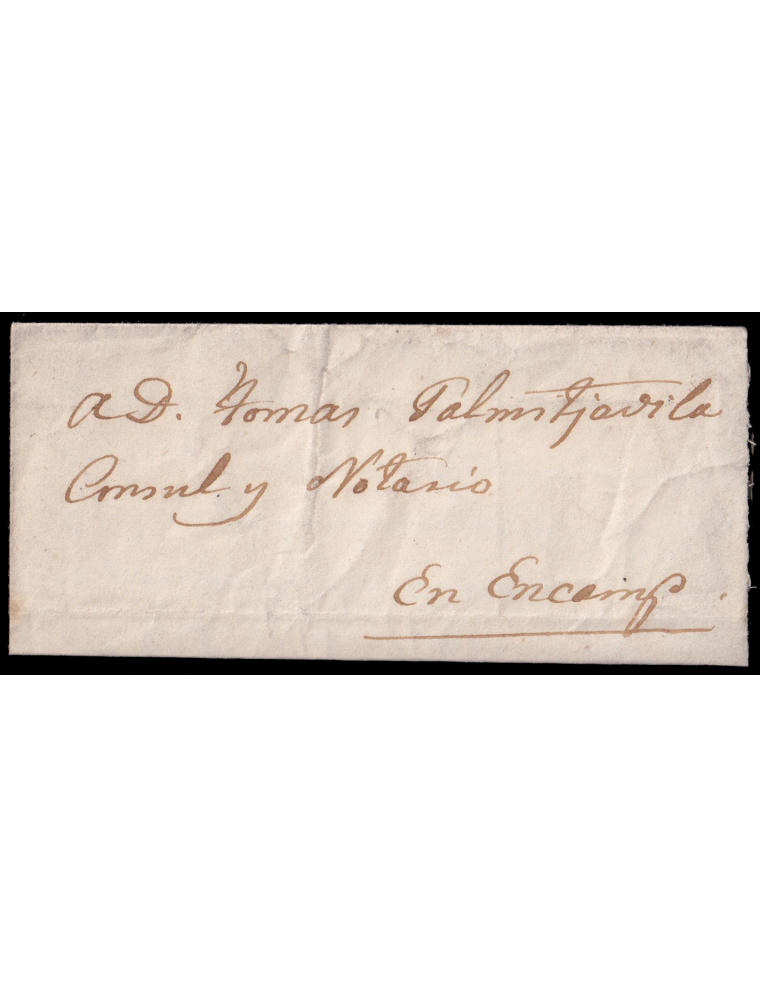 A D. Tomas Palmitjavila
Consul y Notario
En Encamp.